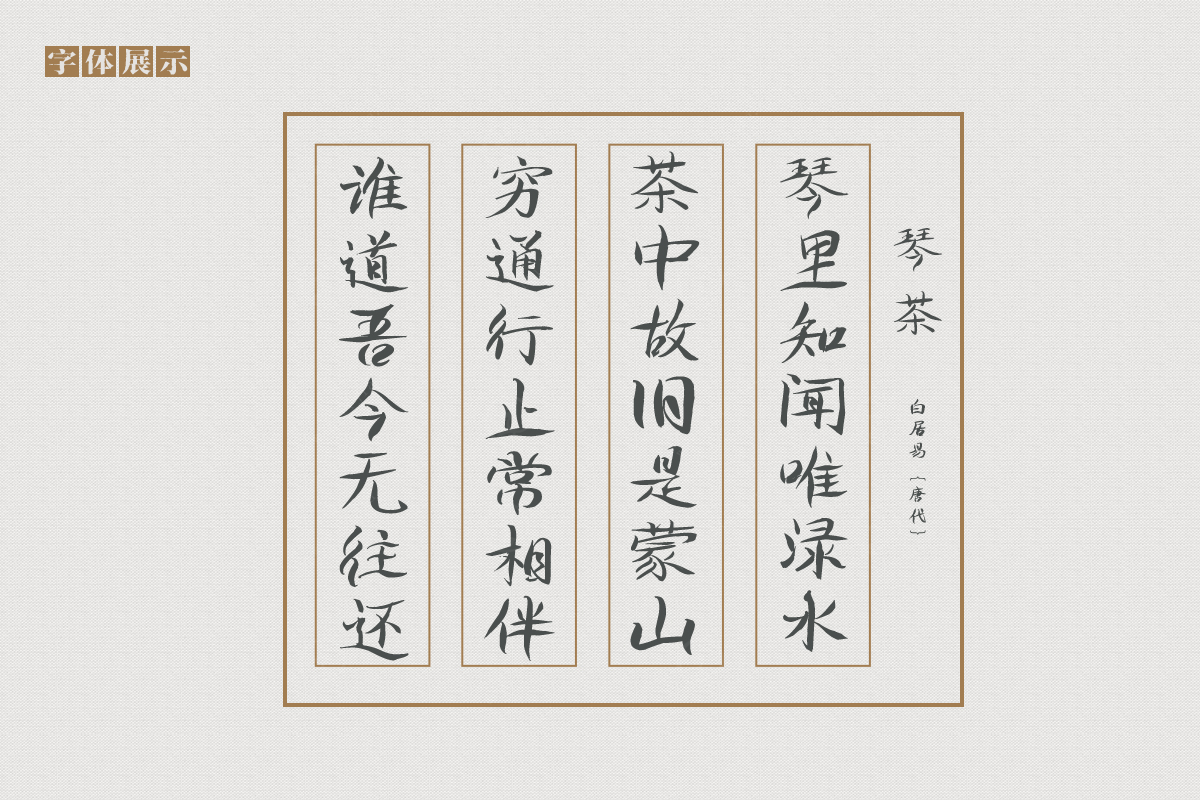 字体展示
琴茶
白居易︹唐代︺
琴里知闻唯渌水
茶中故旧是蒙山
穷通行止常相伴
谁道吾今无往还